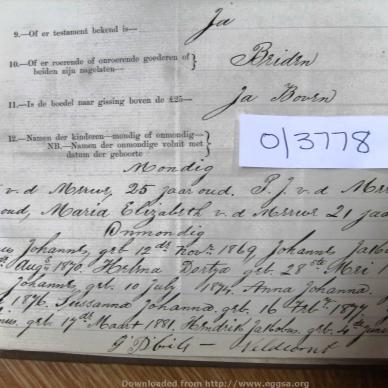 9.—Of er testament bekend is— Ja
10.—Of er roerende of onroerende goederen of beiden zijn nagelaten— Briden
11.—Is de boedel naar gissing boven de £25— Ja Boven
12.—Namen der kinderen—mondig of onmondig—
NB.—Namen der onmondige voluit met datum der geboorte
0/3778
Mondig
v. d Merwe, 25 jaar oud. P. J. v. d
oud, Maria Elizabeth v. d Merwe 21 jaar
Onmondig
Johannes, geb 12de Nov. 1869 Johannes
Aug 1870. geb. 28ste Mei
Johannes, geb. 10 July 1874. Anna Johanna.
1876. Susanna Johanna, geb. 16 Feb. 1877.
geb. 17de Maart 1881. Hendrik Jakobus. geb. 4de June
Downloaded from http://www.eggsa.org